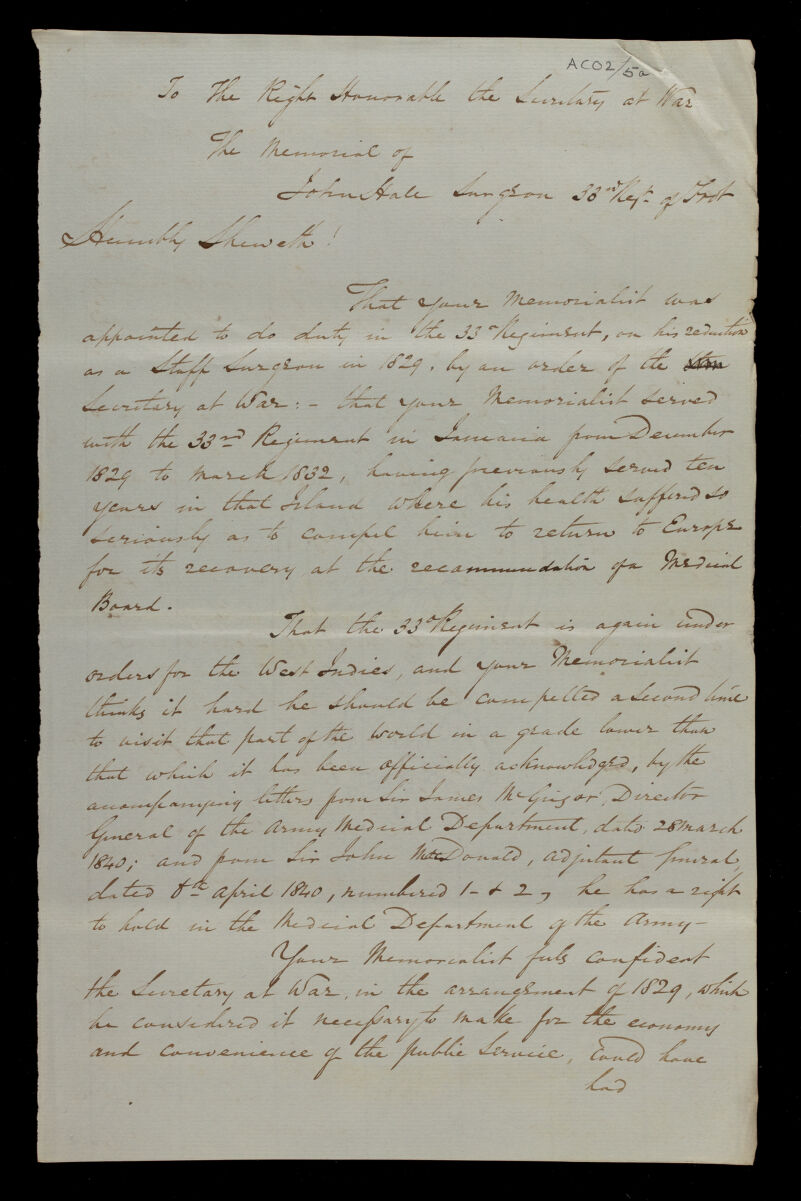 ACO2/5a
To The Right Honorable the Secretary at War
The Memorial of
John Hall Surgeon 33rd Regt. of Foot
Humbly Sheweth!
That your Memorialist was
appointed to do duty in the 33d Regiment, on his reduction
as a Staff Surgeon in 1829, by an order of the
Secretary at War: - that your Memorialist served
with the 33rd Regiment in Jamaica from December
1829 to March 1832, having previously served ten
years in that Island where his health suffered so
seriously as to compel him to return to Europe
for its recovery at the recommendation of a Medical
Board.
That the 33d Regiment is again under
orders for the West Indies, and your Memorialist
thinks it hard he should be compelled a second time
to visit that part of the World in a grade lower than
that which it has been officially acknowledged, by the
acompanying letters from Sir James McGrigor, Director
General of the Army Medical Department, dated 28 March
1840; and from Sir John McDonald, adjutant General,
dated 8th April 1840, numbered 1 & 2, he has a right
to hold in the Medical Department of the Army-
Your Memorialist feels confident
the Secretary at War, in the arrangement of 1829, which
he considered it necessary to make for the economy
and convenience of the public Service, could have
had